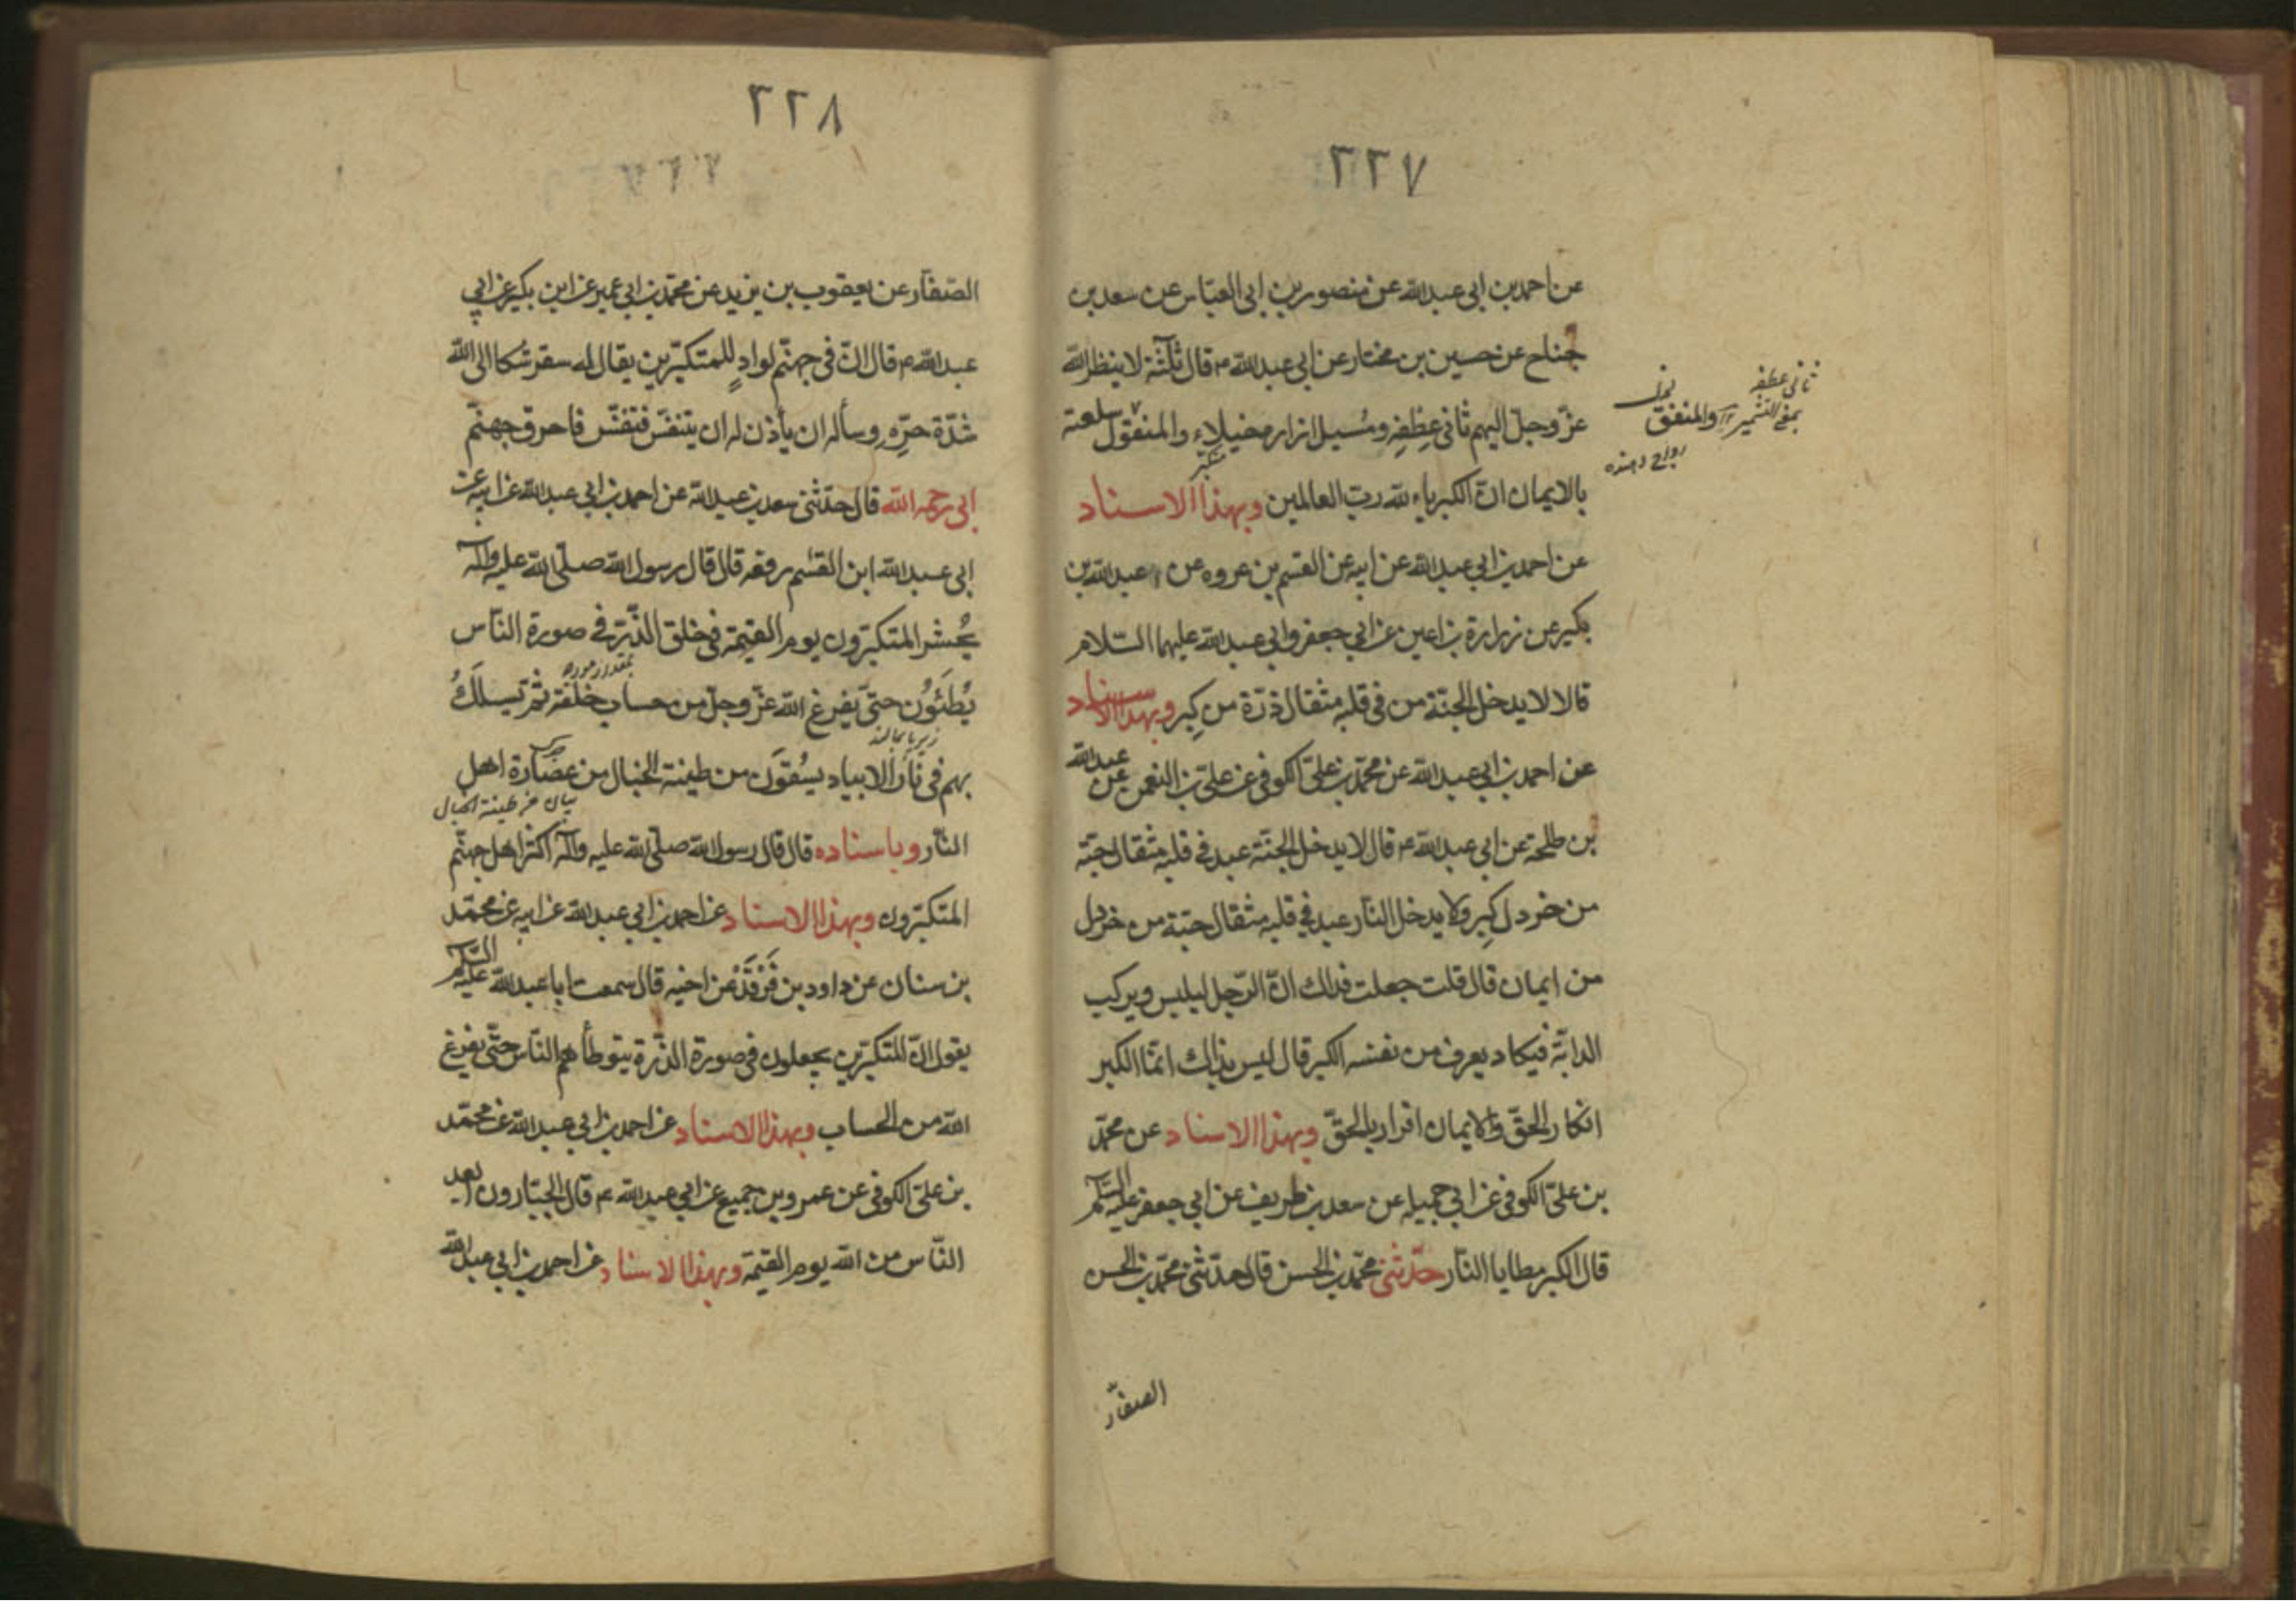 ٢٢٧
عن احمد بن ابى عبد الله عن منصور بن ابى العبّاس عن سعد بن
جناح عن حسين بن مختار عن ابى عبد الله ع قال ثلثة لا ينظر الله
عزّ وجلّ اليهم ثانى عِطْفِه ومُسبل ازاره خيلاء والمنفق سلعته
متكبّر
بالايمان انّ الكبرياء لله ربّ العالمين وبهذا الاسناد
عن احمد بن ابي عبد الله عن ابيه عن القسم بن عروه عن عبد الله بن
بكير عن زرارة بن اعين عن ابي جعفر وابي عبد الله عليهما السّلام
قالا لا يدخل الجنّة من فى قلبه مثقال ذرّة من كِبر وبهذا الاسناد
عن احمد بن ابي عبد الله عن محمّد بن علىّ الكوفى عن علىّ بن النعمن عن عبد الله
بن طلحة عن ابي عبد الله ع قال لا يدخل الجنّة عبد فى قلبه مثقال حبّة
من خردل كِبر ولا يدخل النّار عبد في قلبه مثقال حبّة من خردل
من ايمان قال قلت جعلت فداك انّ الرّجل ليلبس ويركب
الدابّة فيكاد يعرف من نفسه الكبر قال ليس بذاك انمّا الكبر
انكار الحقّ والايمان اقرار بالحقّ وبهذا الاسناد عن محمّد
بن علىّ الكوفى عن ابي جميله عن سعد بن طريف عن ابي جعفر عليه السّلم
قال الكبر مطايا النّار حدّثنى محمّد بن الحسن قال حدّثنى محمّد بن الحسن
الصفّار
ثانى عطفه
بمعنى التشمير والمنفق
رواج دهنده
٢٢٨
الصّفّار عن يعقوب بن يزيد عن محمّد بن ابي عمير عن ابن بكير عن ابي
عبد الله ع قال انّ فى جهنّم لوادٍ للمتكبّرين يقال له سقر شكا الى الله
شدّة حرّه وسأله ان يأذن له ان يتنفّس فتنفّس فاحرق جهنّم
ابى رحمه الله قال حدّثنى سعد بن عبد الله عن احمد بن ابي عبد الله عن ابيه عن
ابى عبد الله ابن القسم رفعه قال قال رسول الله صلّى الله عليه وآله
يُحشر المتكبّرون يوم القيمة فى خلق الذّر في صورة النّاس
بمقدار مورچه
يُطئُون حتّى يفرغ الله عزّ وجلّ من حساب خلقه ثمّ يسلَكُ
زير پا بمالند
بهم فى نار الانيار يسقَون من طينة الخبال من عصارة اهل
بيان من طينة الخبال
النّار وباسناده قال قال رسول الله صلّى الله عليه وآله اكثر اهل جهنّم
المتكبّرون وبهذا الاسناد عن احمد بن ابي عبد الله عن ابيه عن محمّد
بن سنان عن داود بن فَرقَد عن اخيه قال سمعت ابا عبد الله عليه السّلم
يقول انّ المتكبّرين يجعلون فى صورة الذّرة يتوطأهم النّاس حتّى يفرغ
الله من الحساب وبهذا الاسناد عن احمد بن ابي عبد الله عن محمّد
بن علىّ الكوفى عن عمرو بن جميع عن ابي عبد الله ع قال الجبّارون ابعد
النّاس من الله يوم القيمة وبهذا الاسناد عن احمد بن ابي عبد الله